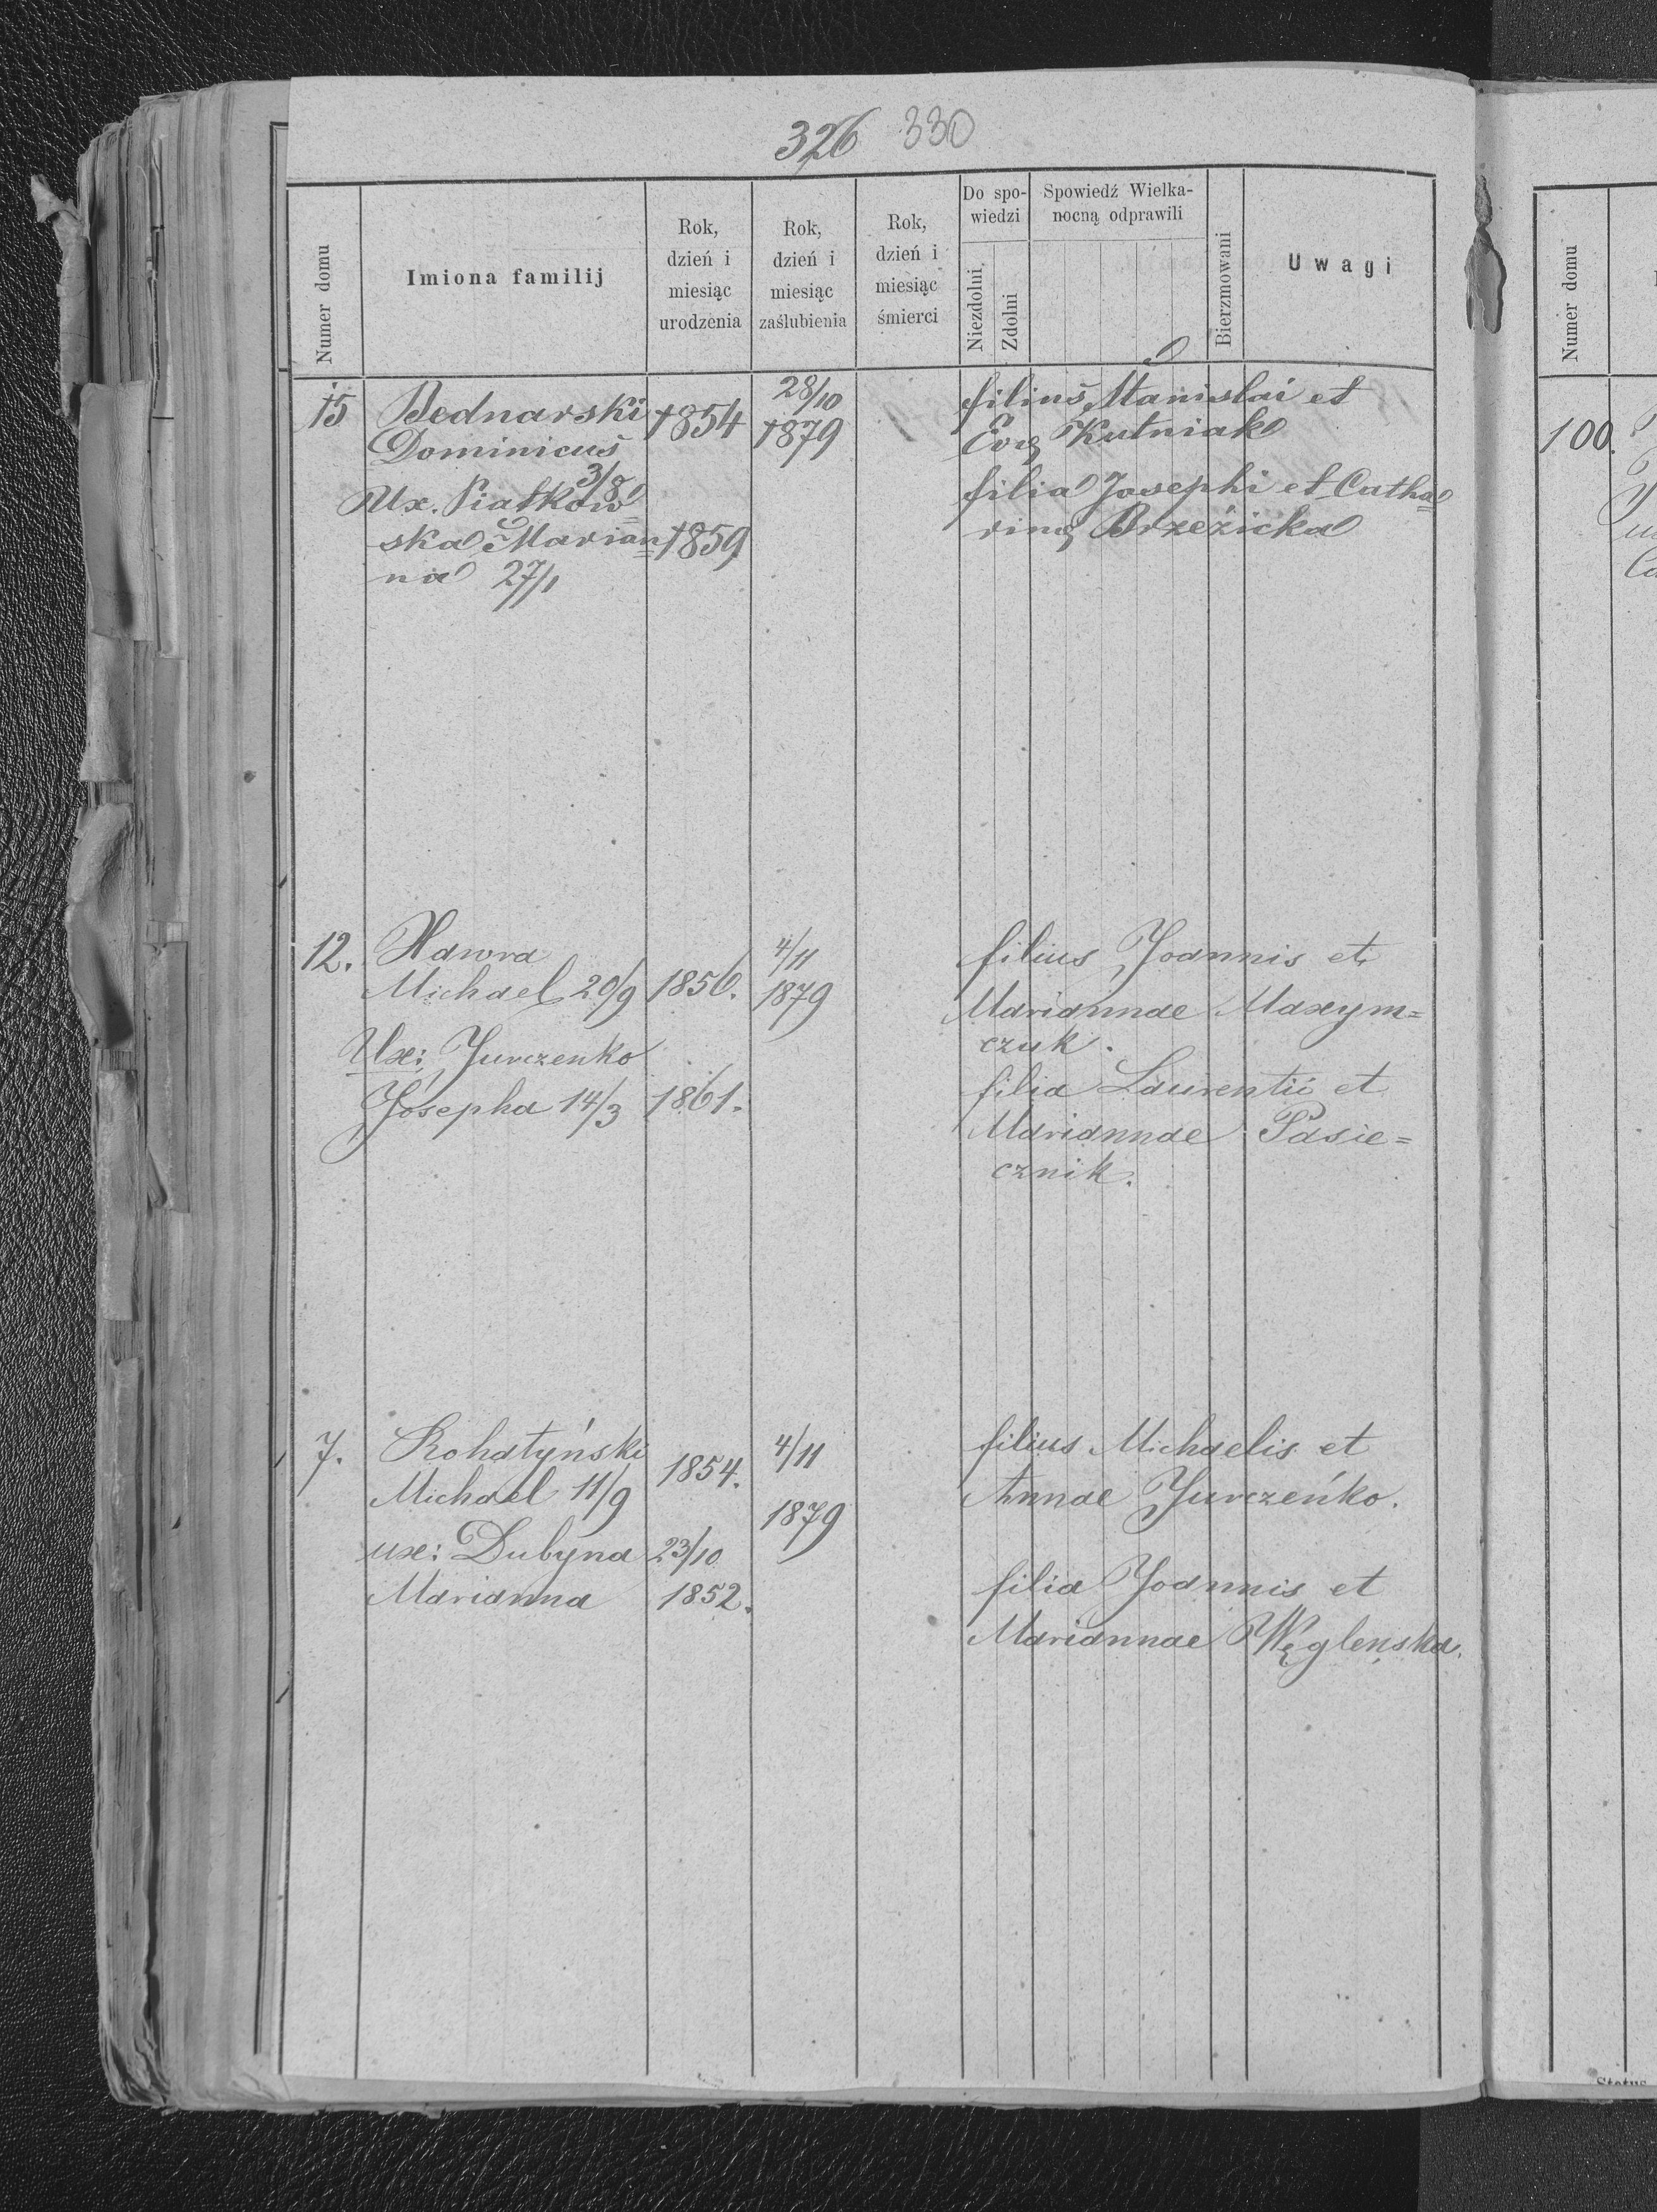 326 330
Numer domu
Imiona familij
Rok, dzień i miesiąc urodzenia
Rok, dzień i miesiąc zaślubienia
Rok, dzień i miesiąc śmierci
Do spo-
wiedzi
Niezdolni
Zdolni
Spowiedź Wielka-
nocną odprawili
Bierzmowani
Uwagi
15 Bednarski 1854 28/10 1879 filius Stanislai et
Dominicus Evæ Kutniak
3/8
Ux. Piatkow= filia Josephi et Catha=
ska Marian= 1859 rinæ Brzezicka
na 27/1
12. Hawra 4/11 filius Joannis et
Michael 20/9 1856. 1879 Mariannae Maxym=
czuk.
Ux: Jurczenko filia Laurentii et
Josepha 14/3 1861. Mariannae Pasie=
cznik.
7. Rohatyński 1854. 4/11 filius Michaelis et
Michael 11/9 1879 Annae Jurczeńko.
ux: Dubyna 23/10
Marianna 1852. filia Joannis et
Mariannae Węgleńska.
Numer domu
100.